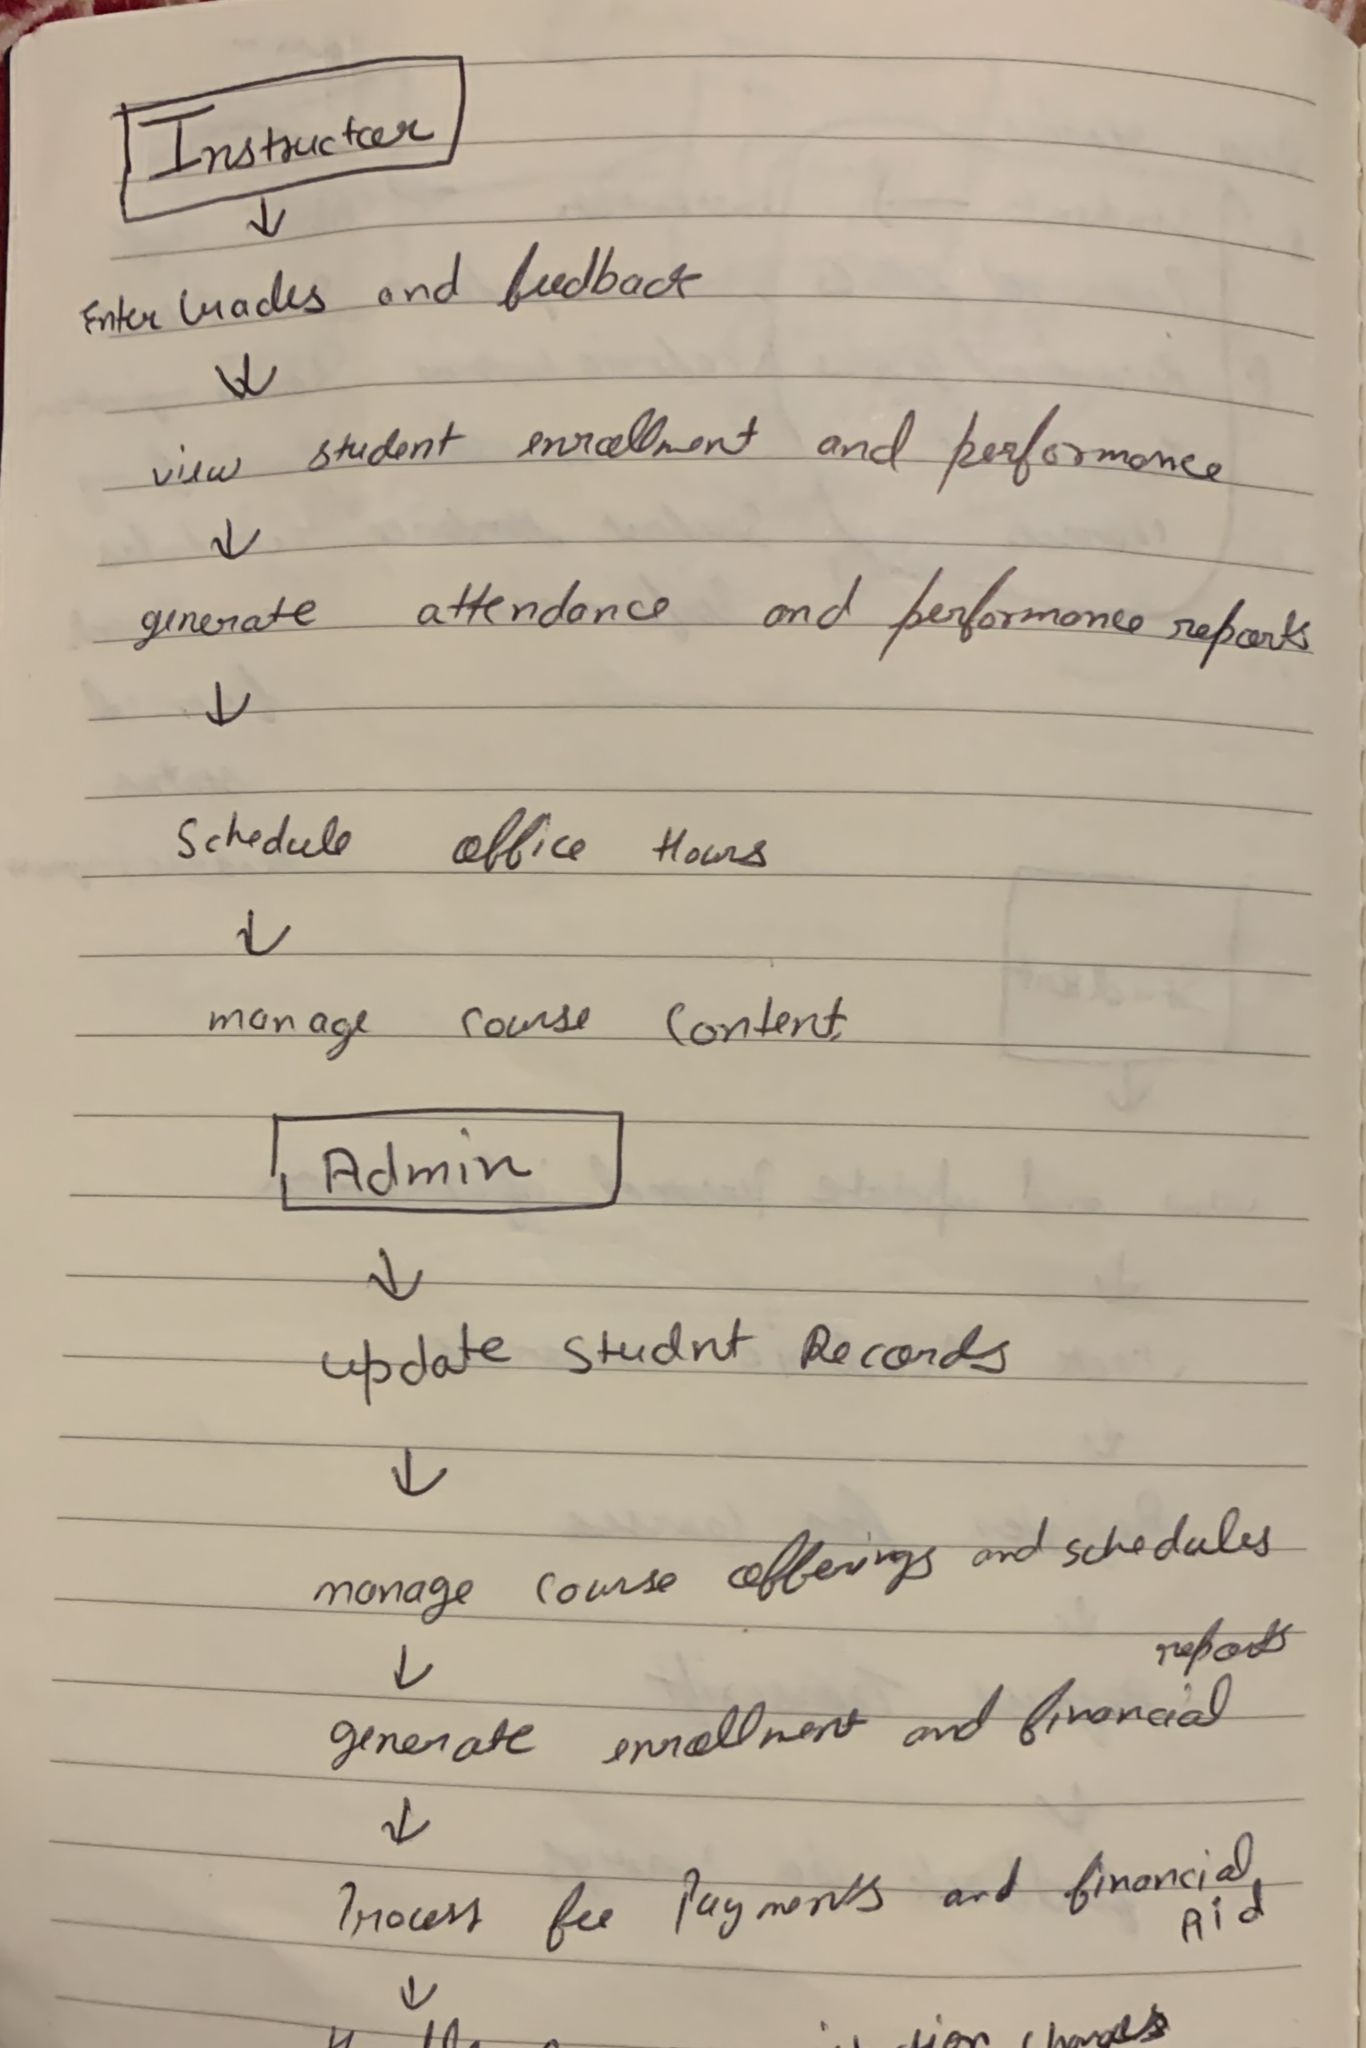 Instructor
↓
Enter Grades and feedback
↓
view student enrollment and performance
↓
generate attendance and performance reports
↓
Schedule office Hours
↓
manage course Content
Admin
↓
update Studnt Records
↓
manage course offerings and schedules
↓
reports
generate enrollment and financial
↓
Process fee Payments and financial
Aid
↓
changes